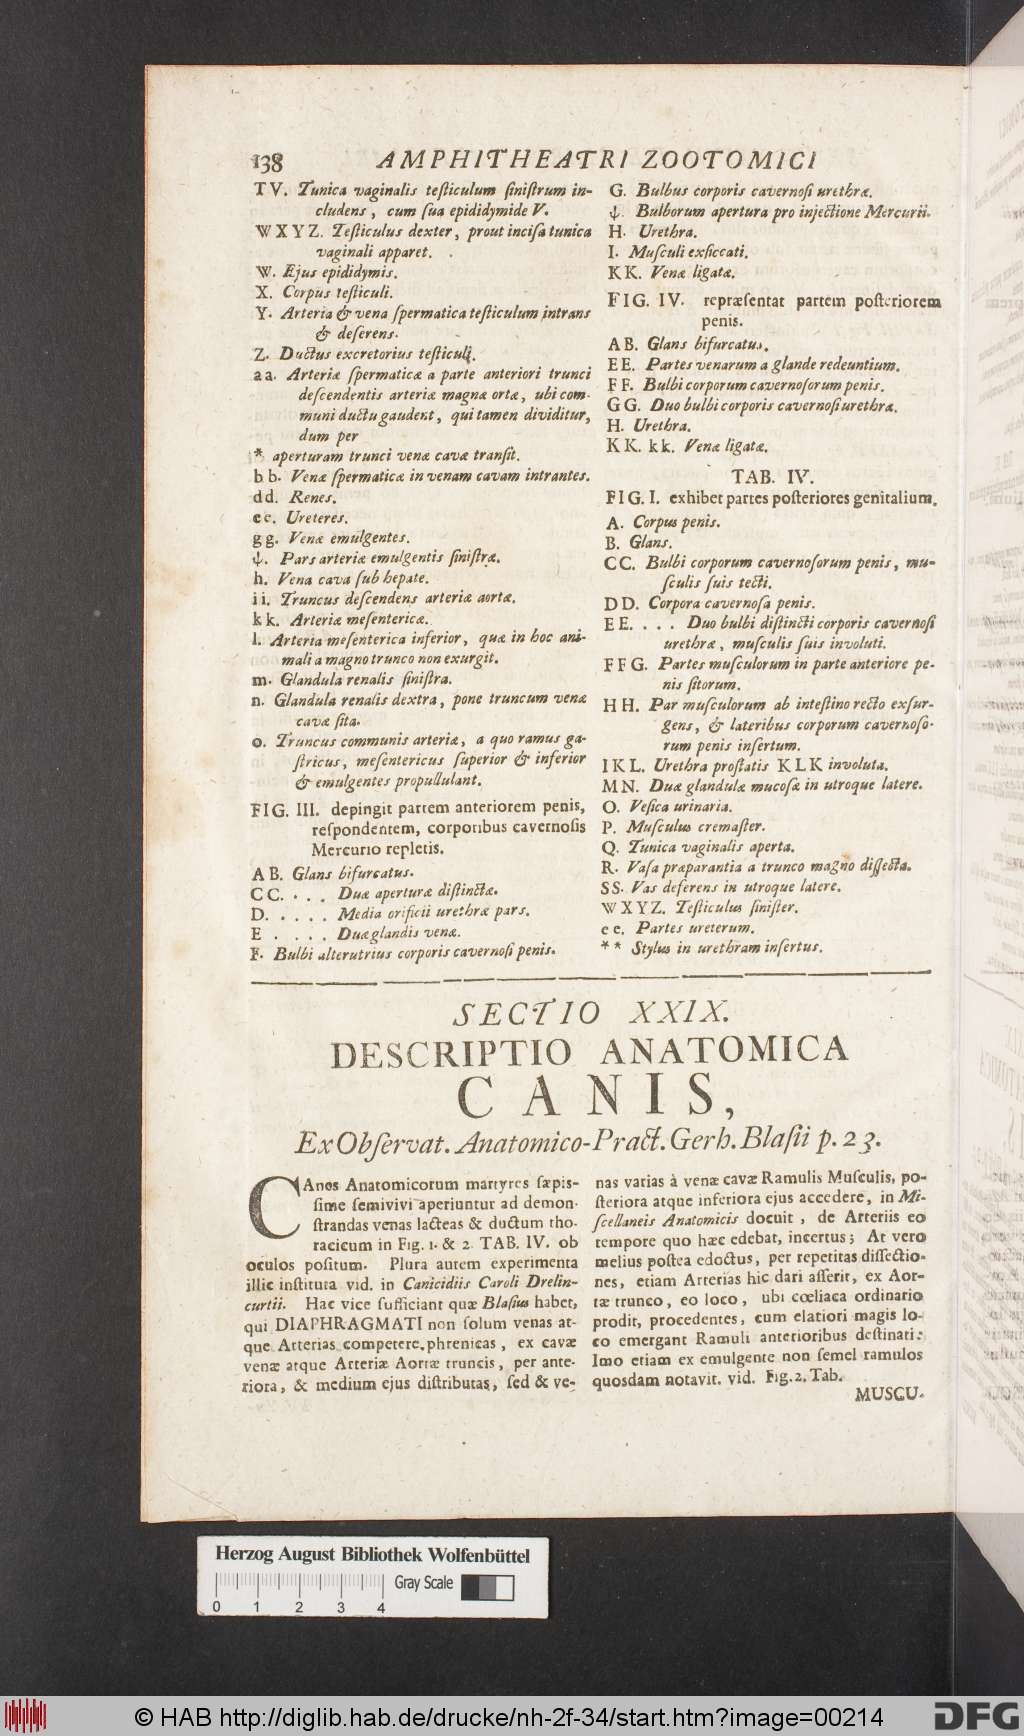 138 AMPHITHEATRI ZOOTOMICI
TV. Tunica vaginalis teſticulum ſiniſtrum in-
cludens, cum ſua epididymide V.
WXYZ. Teſticulus dexter, prout inciſa tunica
vaginali apparet.
W. Ejus epididymis.
X. Corpus teſticuli.
Y. Arteria & vena ſpermatica teſticulum intrans
& deferens.
Z. Ductus excretorius teſticuli.
aa. Arteriæ ſpermaticæ a parte anteriori trunci
deſcendentis arteriæ magnæ ortæ, ubi com-
muni ductu gaudent, qui tamen dividitur,
dum per
* aperturam trunci venæ cavæ tranſit.
bb. Venæ ſpermaticæ in venam cavam intrantes.
dd. Renes.
ee. Ureteres.
gg. Venæ emulgentes.
ψ. Pars arteriæ emulgentis ſiniſtræ.
h. Vena cava ſub hepate.
ii. Truncus deſcendens arteriæ aortæ.
kk. Arteriæ meſentericæ.
l. Arteria meſenterica inferior, quæ in hoc ani-
mali a magno trunco non exurgit.
m. Glandula renalis ſiniſtra.
n. Glandula renalis dextra, pone truncum venæ
cavæ ſita.
o. Truncus communis arteriæ, a quo ramus ga-
ſtricus, meſentericus ſuperior & inferior
& emulgentes propullulant.
FIG. III. depingit partem anteriorem penis,
reſpondentem, corporibus cavernoſis
Mercurio repletis.
AB. Glans bifurcatus.
CC. . . . Duæ aperturæ diſtinctæ.
D. . . . . Media orificii urethræ pars.
E . . . . Duæ glandis venæ.
F. Bulbi alterutrius corporis cavernoſi penis.
G. Bulbus corporis cavernoſi urethræ.
ψ. Bulborum apertura pro injectione Mercurii.
H. Urethra.
I. Muſculi exſiccati.
KK. Venæ ligatæ.
FIG. IV. repræſentat partem poſteriorem
penis.
AB. Glans bifurcatus.
EE. Partes venarum a glande redeuntium.
FF. Bulbi corporum cavernoſorum penis.
GG. Duo bulbi corporis cavernoſi urethræ.
H. Urethra.
KK. kk. Venæ ligatæ.
TAB. IV.
FIG. I. exhibet partes poſteriores genitalium.
A. Corpus penis.
B. Glans.
CC. Bulbi corporum cavernoſorum penis, mu-
ſculis ſuis tecti.
DD. Corpora cavernoſa penis.
EE. . . . Duo bulbi diſtincti corporis cavernoſi
urethræ, muſculis ſuis involuti.
FFG. Partes muſculorum in parte anteriore pe-
nis ſitorum.
HH. Par muſculorum ab inteſtino recto exſur-
gens, & lateribus corporum cavernoſo-
rum penis inſertum.
IKL. Urethra proſtatis KLK involuta.
MN. Duæ glandulæ mucoſæ in utroque latere.
O. Veſica urinaria.
P. Muſculus cremaſter.
Q. Tunica vaginalis aperta.
R. Vaſa præparantia a trunco magno diſſecta.
SS. Vas deferens in utroque latere.
WXYZ. Teſticulus ſiniſter.
ee. Partes ureterum.
** Stylus in urethram inſertus.
SECTIO XXIX.
DESCRIPTIO ANATOMICA
CANIS,
Ex Obſervat. Anatomico-Pract. Gerh. Blaſii p. 23.
CAnes Anatomicorum martyres ſæpis-
ſime ſemivivi aperiuntur ad demon-
ſtrandas venas lacteas & ductum tho-
racicum in Fig. 1. & 2. TAB. IV. ob
oculos poſitum. Plura autem experimenta
illic inſtituta vid. in Canicidiis Caroli Drelin-
curtii. Hac vice ſufficiant quæ Blaſius habet,
qui DIAPHRAGMATI non ſolum venas at-
que Arterias competere, phrenicas, ex cavæ
venæ atque Arteriæ Aortæ truncis, per ante-
riora, & medium ejus diſtributas, ſed & ve-
nas varias à venæ cavæ Ramulis Muſculis, po-
ſteriora atque inferiora ejus accedere, in Mi-
ſcellaneis Anatomicis docuit, de Arteriis eo
tempore quo hæc edebat, incertus; At vero
melius poſtea edoctus, per repetitas diſſectio-
nes, etiam Arterias hic dari aſſerit, ex Aor-
tæ trunco, eo loco, ubi cœliaca ordinario
prodit, procedentes, cum elatiori magis lo-
co emergant Ramuli anterioribus deſtinati:
Imo etiam ex emulgente non ſemel ramulos
quosdam notavit. vid. Fig. 2. Tab.
MUSCU-
Herzog August Bibliothek Wolfenbüttel
Gray Scale
0 1 2 3 4
© HAB http://diglib.hab.de/drucke/nh-2f-34/start.htm?image=00214
DFG